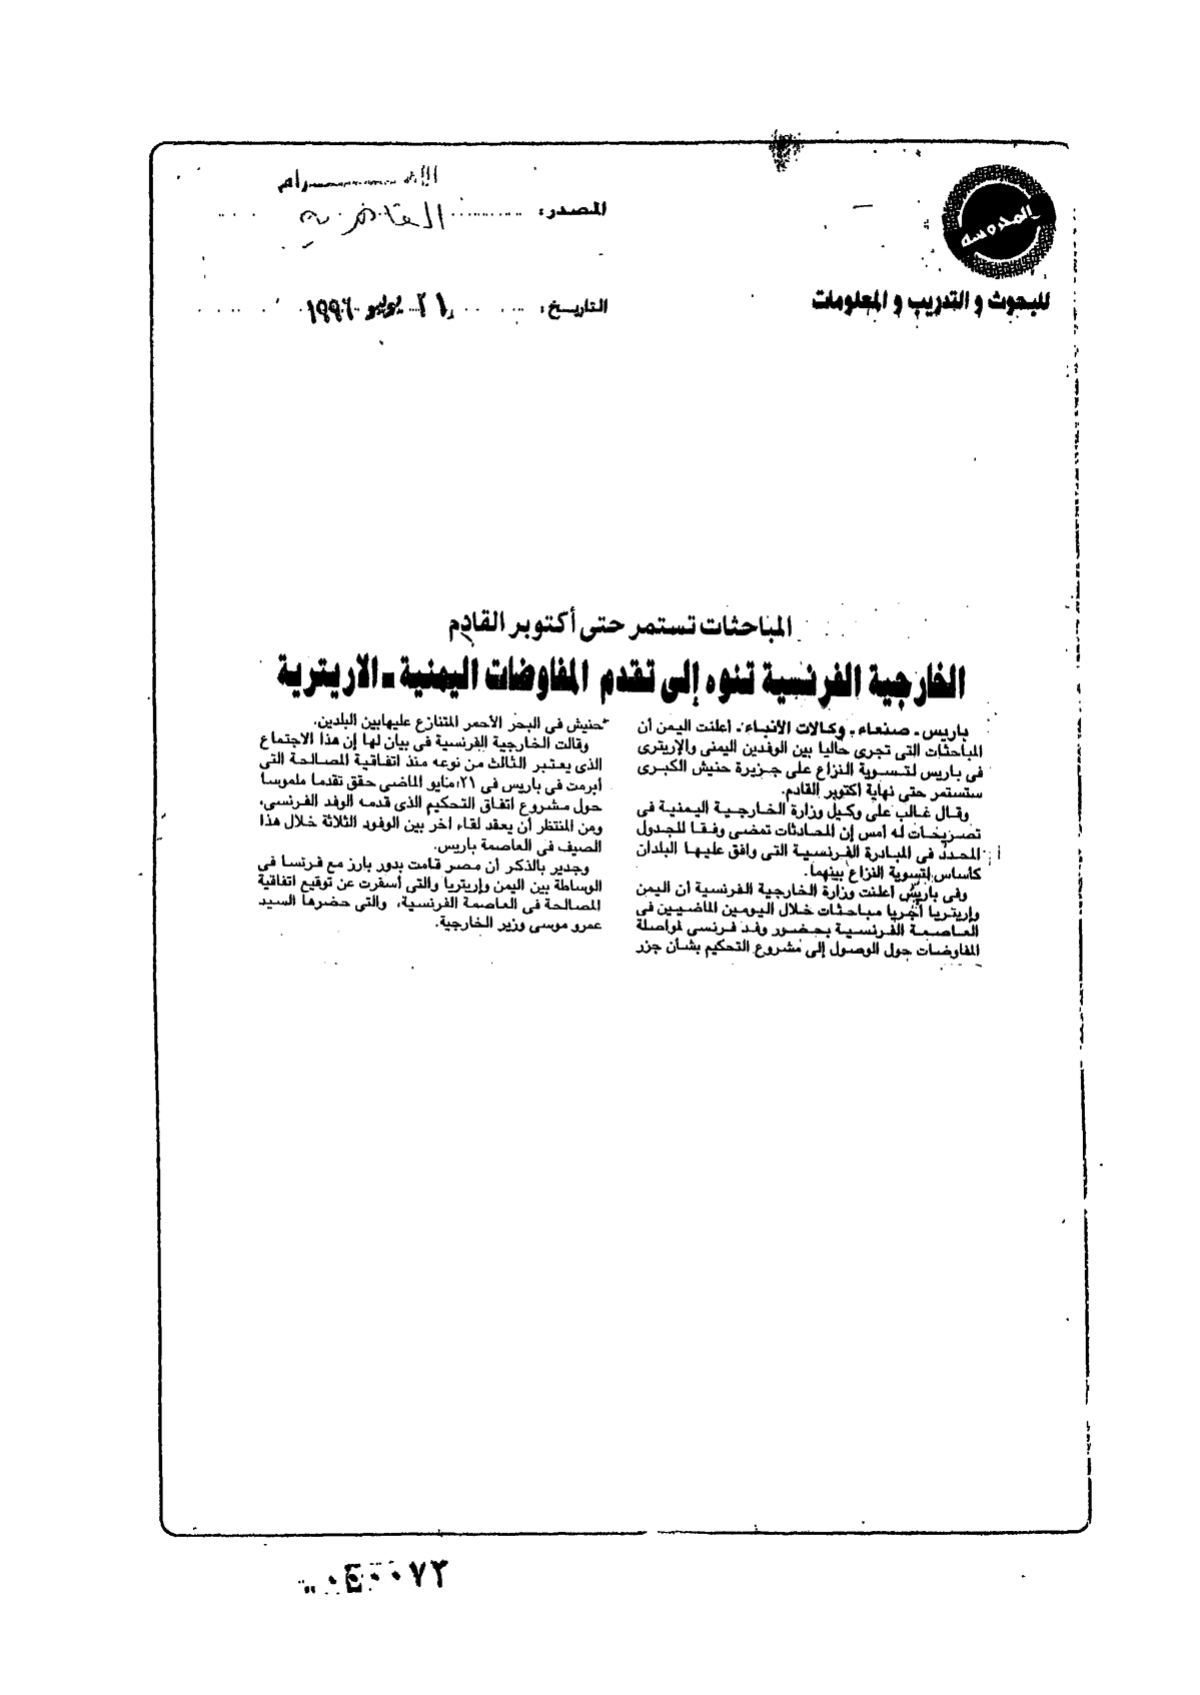 المحروسة
للبحوث و التدريب و المعلومات
الاهـــــرام
المصدر: القاهرية
التاريخ: ٢١ يوليو ١٩٩٦
المباحثات تستمر حتى أكتوبر القادم
الخارجية الفرنسية تنوه إلى تقدم المفاوضات اليمنية ـ الاريترية
باريس ـ صنعاء ـ وكالات الأنباء ـ أعلنت اليمن أن
المباحثات التى تجرى حاليا بين الوفدين اليمنى والإريترى
فى باريس لتسوية النزاع على جزيرة حنيش الكبرى
ستستمر حتى نهاية أكتوبر القادم.
وقال غالب على وكيل وزارة الخارجية اليمنية فى
تصريحات له أمس إن المحادثات تمضى وفقا للجدول
المحدد فى المبادرة الفرنسية التى وافق عليها البلدان
كأساس لتسوية النزاع بينهما.
وفى باريس أعلنت وزارة الخارجية الفرنسية أن اليمن
وإريتريا أجريا مباحثات خلال اليومين الماضيين فى
العاصمة الفرنسية بحضور وفد فرنسى لمواصلة
المفاوضات حول الوصول إلى مشروع التحكيم بشأن جزر
حنيش فى البحر الأحمر المتنازع عليهابين البلدين.
وقالت الخارجية الفرنسية فى بيان لها إن هذا الاجتماع
الذى يعتبر الثالث من نوعه منذ اتفاقية المصالحة التى
أبرمت فى باريس فى ٢١ مايو الماضى حقق تقدما ملموسا
حول مشروع اتفاق التحكيم الذى قدمه الوفد الفرنسى،
ومن المنتظر أن يعقد لقاء آخر بين الوفود الثلاثة خلال هذا
الصيف فى العاصمة باريس.
وجدير بالذكر أن مصر قامت بدور بارز مع فرنسا فى
الوساطة بين اليمن وإريتريا والتى أسفرت عن توقيع اتفاقية
المصالحة فى العاصمة الفرنسية، والتى حضرها السيد
عمرو موسى وزير الخارجية.
٠٤٠٠٧٣